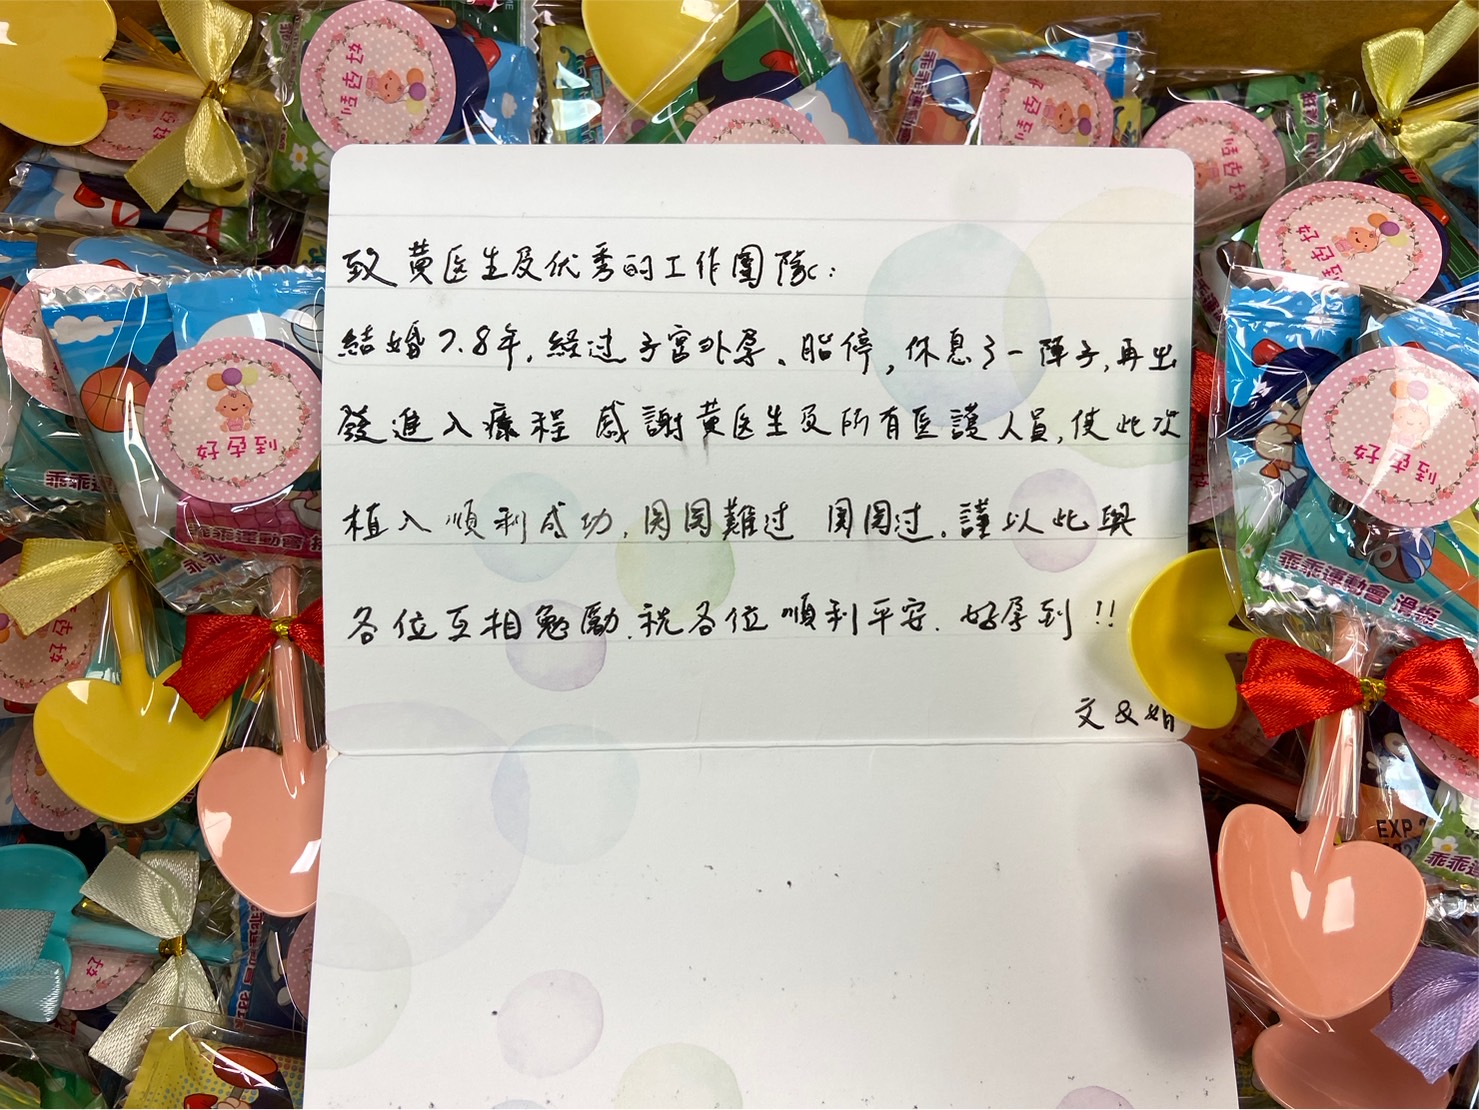 致黃医生及优秀的工作團隊：
結婚7.8年，経过子宮外孕、胎停，休息了一陣子，再出
發進入療程 感謝黃医生及所有医護人員，使此次
植入順利成功．関関難过 関関过．謹以此與
各位互相勉勵．祝各位順利平安．好孕到!!
文&娟
好孕到
好孕到
好孕到
好孕到
好孕到
好孕到
乖乖運動會
乖乖運動會 滑板
EXP